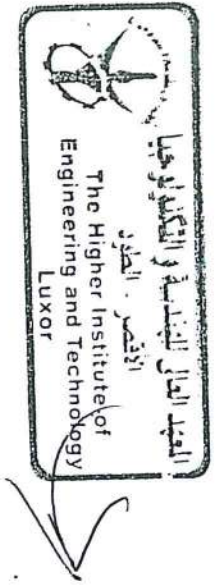 المعهد العالى للهندسة والتكنولوجيا
الأقصر - الطود
The Higher Institute of
Engineering and Technology
Luxor